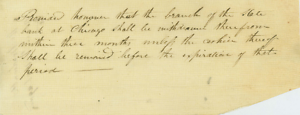 Provided however that the branch of the State
bank at Chicago shall be withdrawn therefrom
within three months unless the cashier thereof
shall be removed before the expiration of that
period